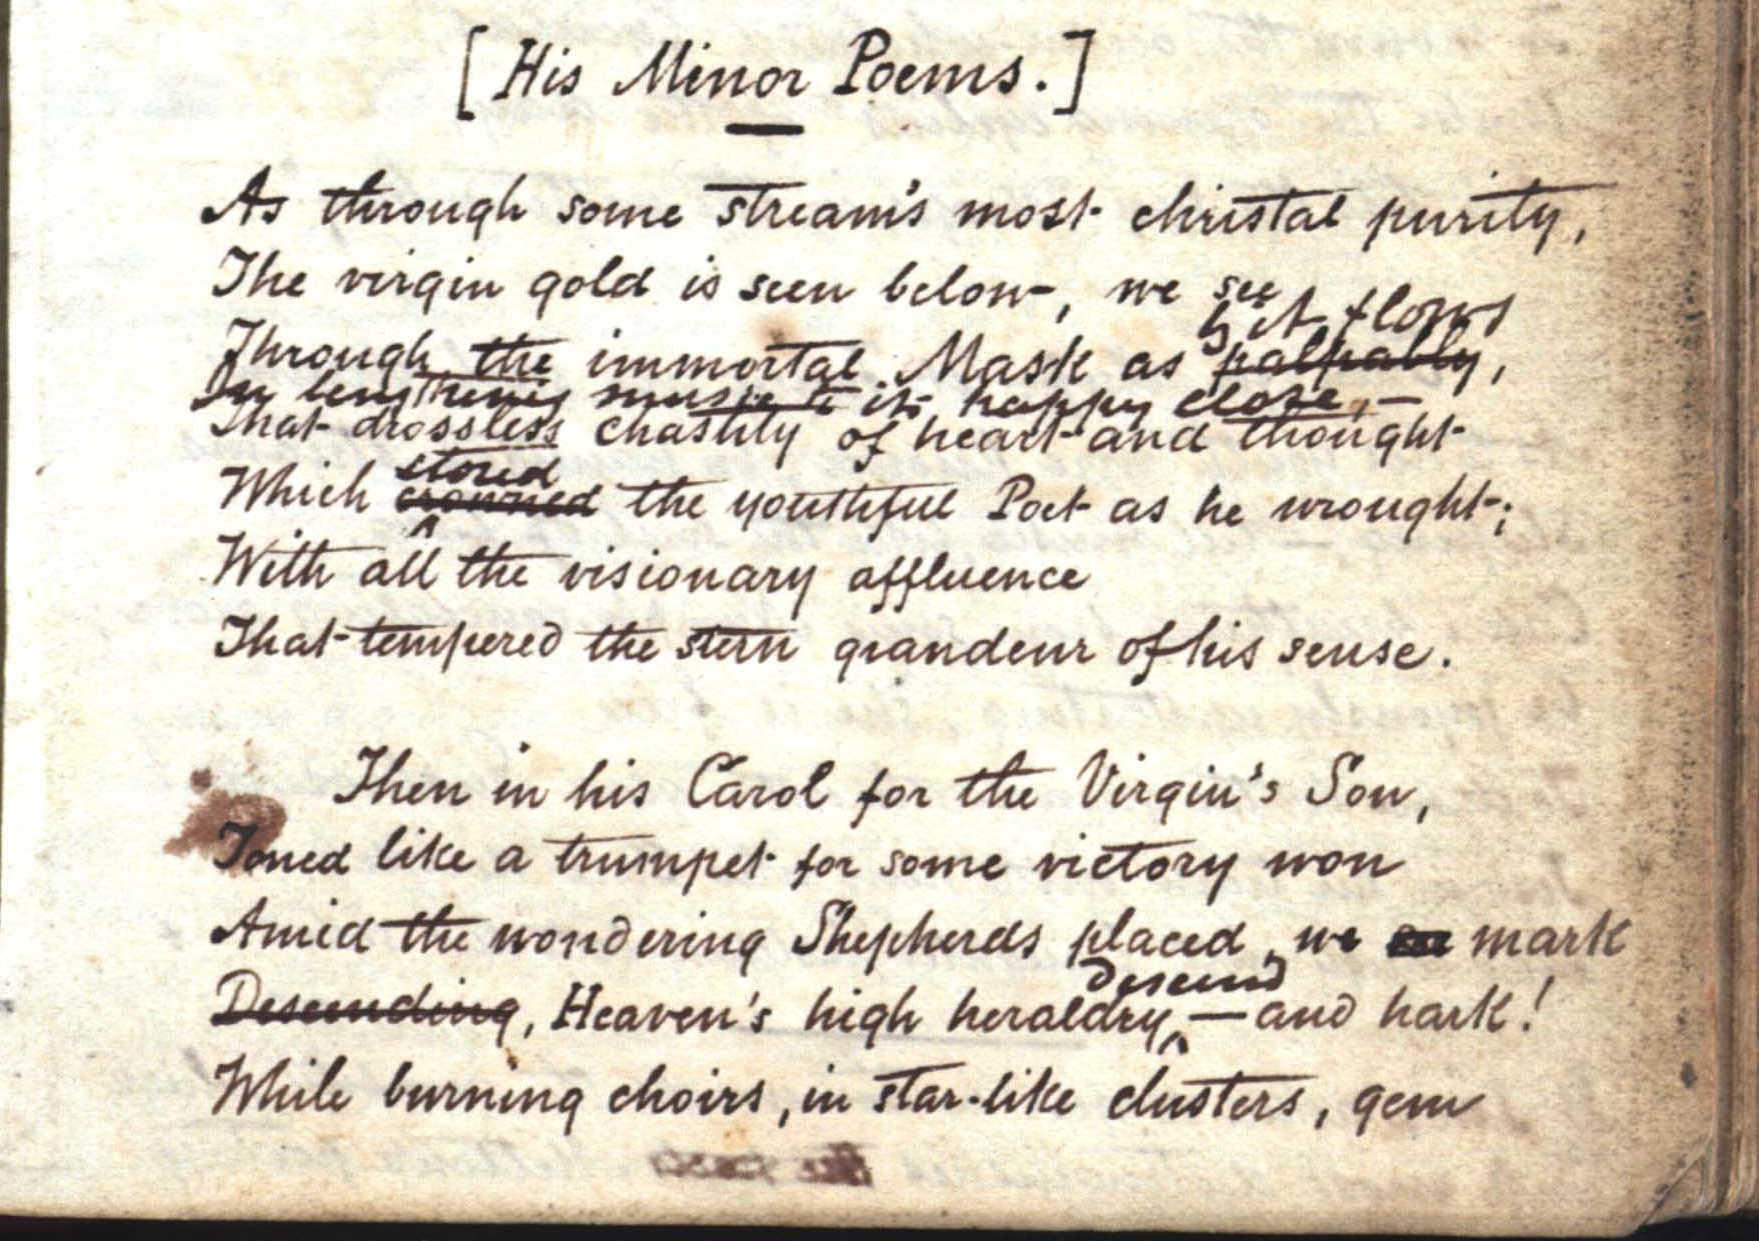 [His Minor Poems.]
As through some stream's most christal purity,
The virgin gold is seen below, we see
yet flows
Through the immortal Mask as palpably,
In lengthening music to its happy close, —
That drossless chastity of heart and thought
stored
Which crowned the youthful Poet as he wrought;
With all the visionary affluence
That tempered the stern grandeur of his sense.
Then in his Carol for the Virgin's Son,
Toned like a trumpet for some victory won
Amid the wondering Shepherds placed, we mark
descend
Descending, Heaven's high heraldry, — and hark!
While burning choirs, in star-like clusters, gem